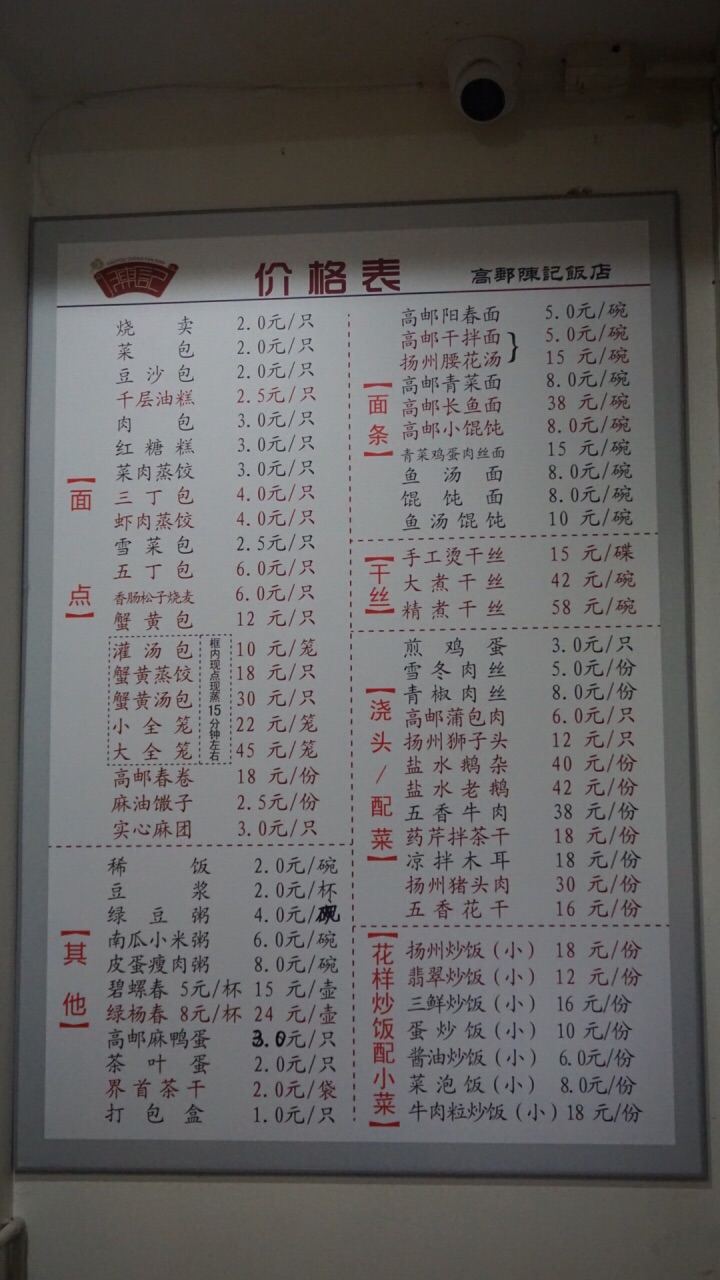 陳記
价格表
高郵陳記飯店
【面点】
烧卖 2.0元/只
菜包 2.0元/只
豆沙包 2.0元/只
千层油糕 2.5元/只
肉包 3.0元/只
红糖糕 3.0元/只
菜肉蒸饺 3.0元/只
三丁包 4.0元/只
虾肉蒸饺 4.0元/只
雪菜包 2.5元/只
五丁包 6.0元/只
香肠松子烧麦 6.0元/只
蟹黄包 12 元/只
灌汤包 10 元/笼
蟹黄蒸饺 18 元/只
蟹黄汤包 30 元/只
小全笼 22 元/笼
大全笼 45 元/笼
框内现点现蒸15分钟左右
高邮春卷 18 元/份
麻油馓子 2.5元/份
实心麻团 3.0元/只
【其他】
稀饭 2.0元/碗
豆浆 2.0元/杯
绿豆粥 4.0元/碗
南瓜小米粥 6.0元/碗
皮蛋瘦肉粥 8.0元/碗
碧螺春 5元/杯 15 元/壶
绿杨春 8元/杯 24 元/壶
高邮麻鸭蛋 3.0元/只
茶叶蛋 2.0元/只
界首茶干 2.0元/袋
打包盒 1.0元/只
【面条】
高邮阳春面 5.0元/碗
高邮干拌面 5.0元/碗
扬州腰花汤 } 15 元/碗
高邮青菜面 8.0元/碗
高邮长鱼面 38 元/碗
高邮小馄饨 8.0元/碗
青菜鸡蛋肉丝面 15 元/碗
鱼汤面 8.0元/碗
馄饨面 8.0元/碗
鱼汤馄饨 10 元/碗
【干丝】
手工烫干丝 15 元/碟
大煮干丝 42 元/碗
精煮干丝 58 元/碗
【浇头/配菜】
煎鸡蛋 3.0元/只
雪冬肉丝 5.0元/份
青椒肉丝 8.0元/份
高邮蒲包肉 6.0元/只
扬州狮子头 12 元/只
盐水鹅杂 40 元/份
盐水老鹅 42 元/份
五香牛肉 38 元/份
药芹拌茶干 18 元/份
凉拌木耳 18 元/份
扬州猪头肉 30 元/份
五香花干 16 元/份
【花样炒饭配小菜】
扬州炒饭(小) 18 元/份
翡翠炒饭(小) 12 元/份
三鲜炒饭(小) 16 元/份
蛋炒饭(小) 10 元/份
酱油炒饭(小) 6.0元/份
菜泡饭(小) 8.0元/份
牛肉粒炒饭(小) 18 元/份